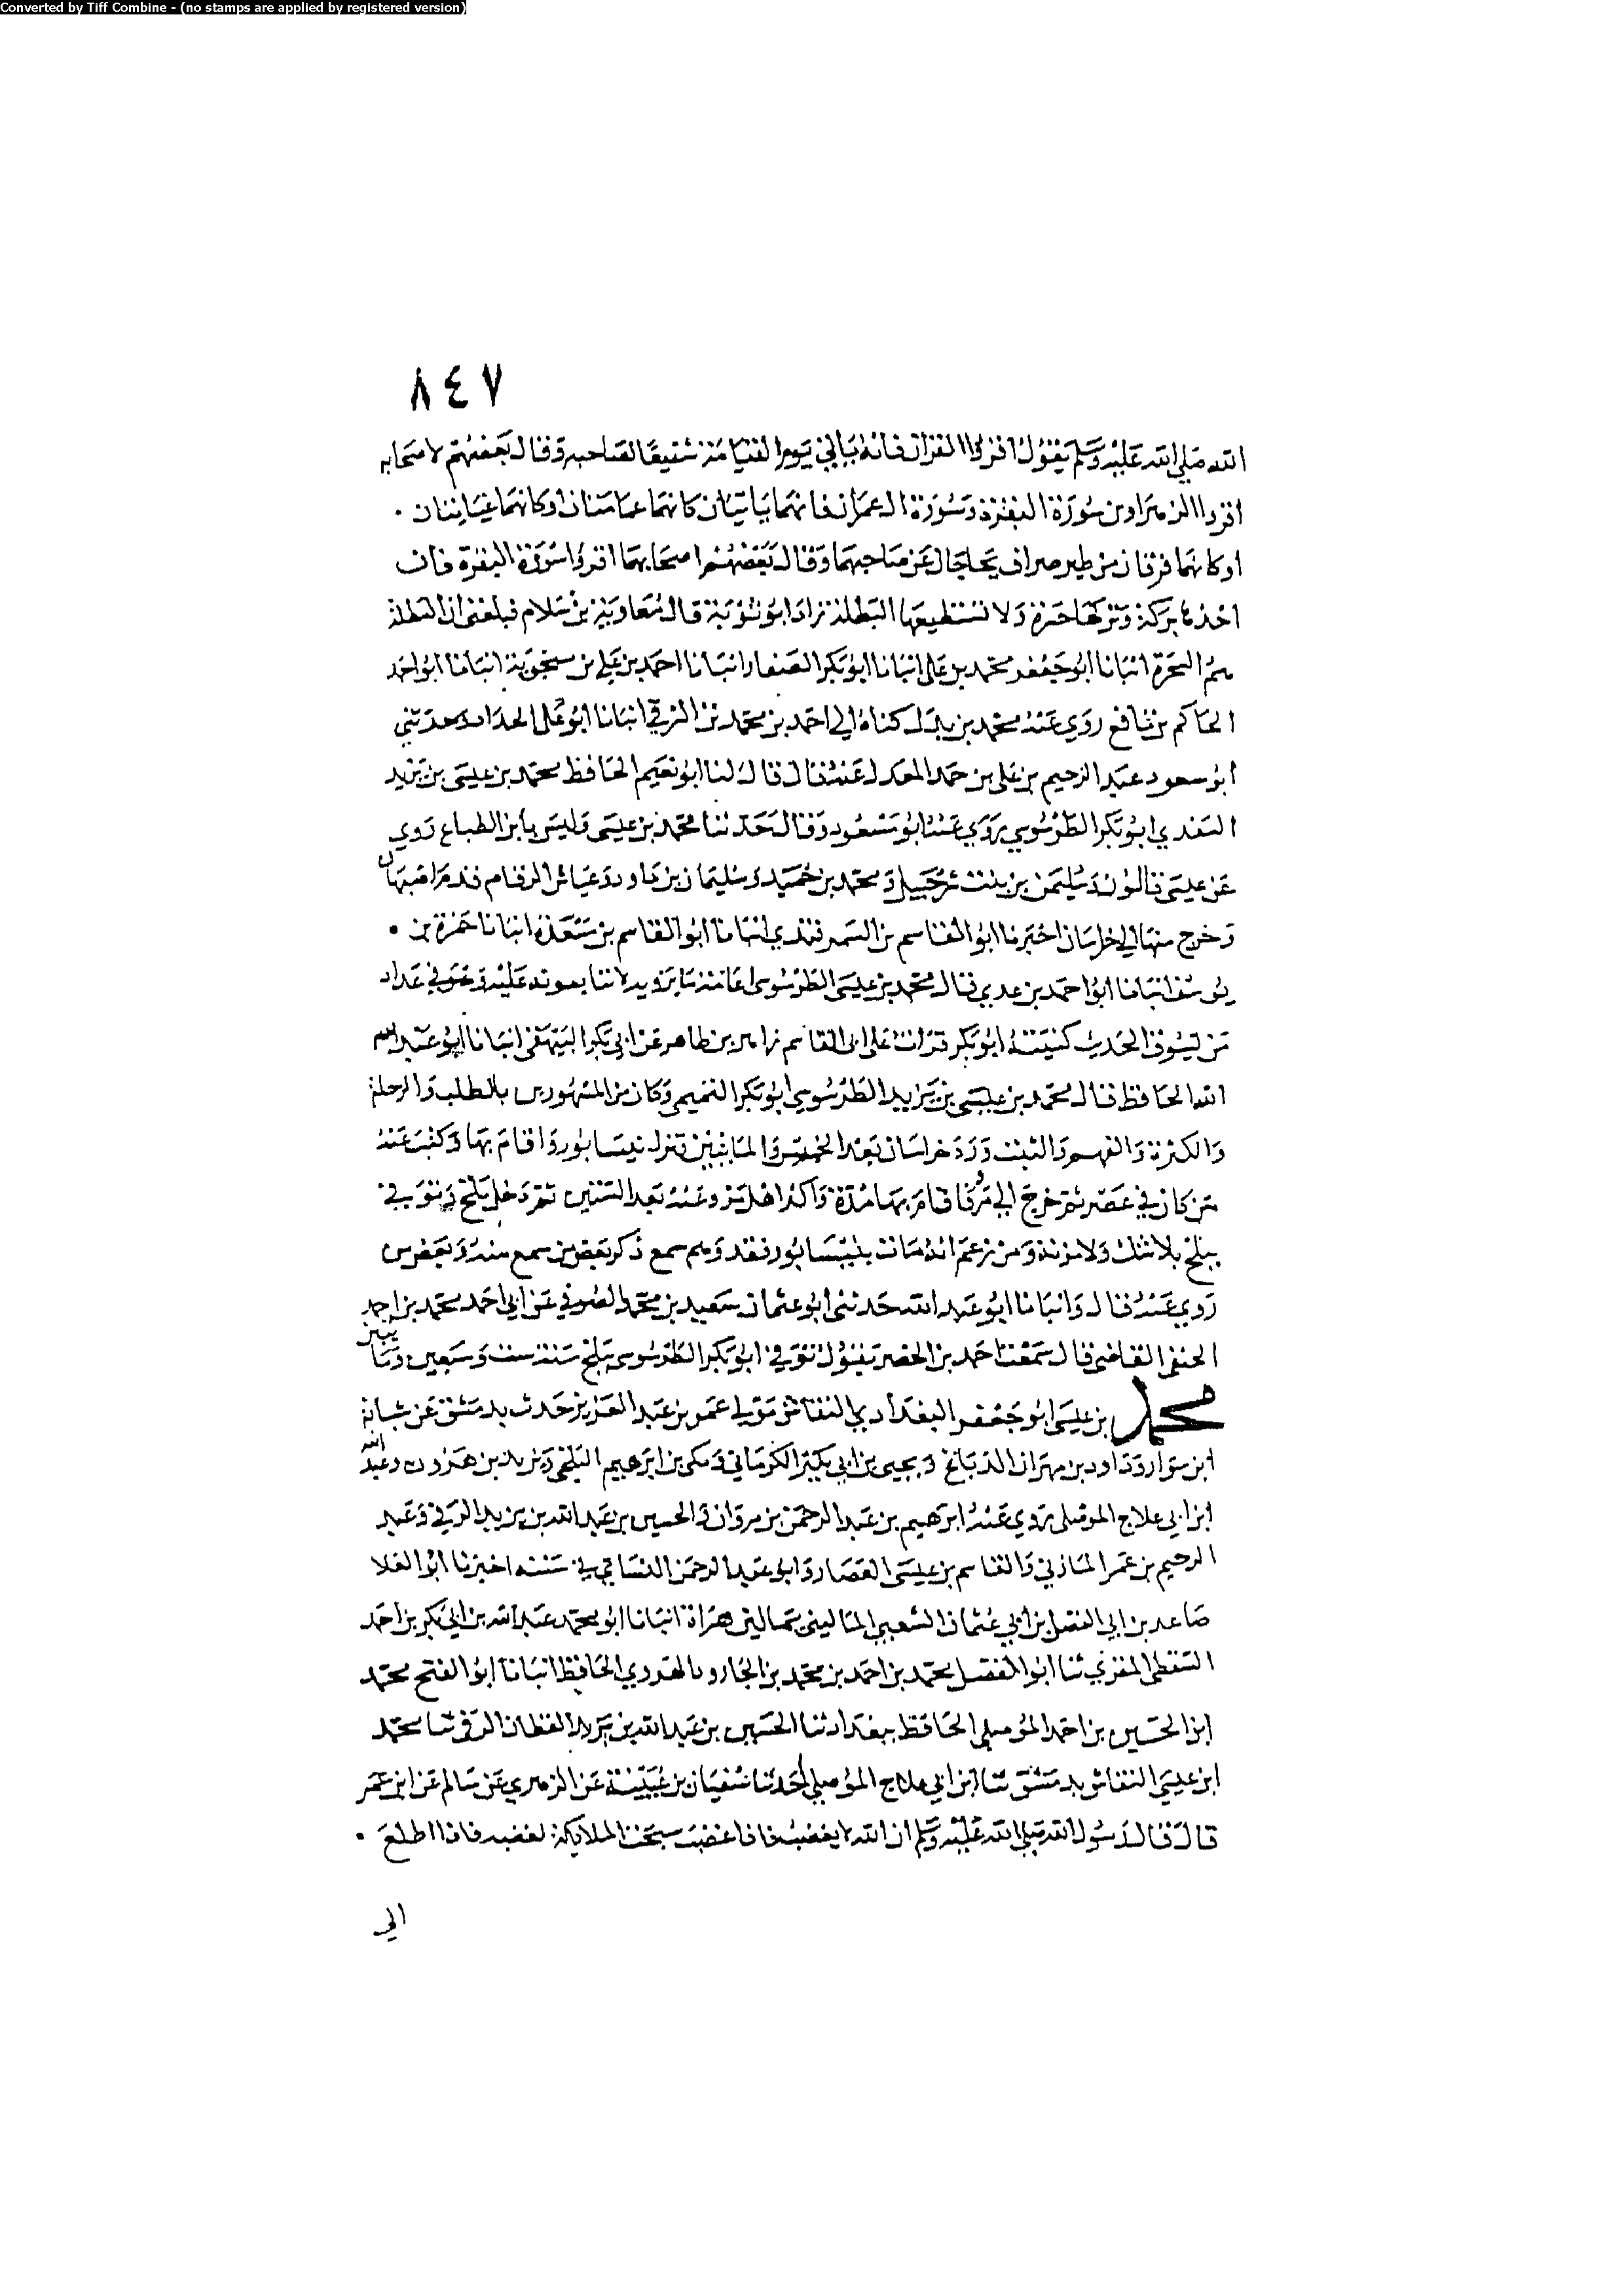 Converted by Tiff Combine - (no stamps are applied by registered version)
٨٤٧
الله صلى الله عليه وسلم يقول اقرؤا القران فانه ياتي يوم القيامة شفيعا لصاحبه وقال بعضهم لاصحابه
اقرؤا الزهراوين سورة البقرة وسورة ال عمران فانهما ياتيان كانهما غمامتان او كانهما غيايتان .
او كانهما فرقان من طير صواف يحاجان عن صاحبهما وقال بعضهم اصحابهما اقرؤا سورة البقرة فان
اخذها بركة وتركها حسرة ولا تستطيعها البطلة زاد ابو توبة قال معاوية بن سلام فبلغني ان البطلة
هم السحرة انبانا ابو جعفر محمد بن علي انبانا ابو بكر الصفار انبانا احمد بن علي بن منجوية انبانا ابو احمد
الحاكم بن نافع روى عنه محمد بن كناه لي احمد بن محمد بن الزفي انبانا ابو علي الحداد وحدثني
ابو مسعود عبد الرحيم بن علي بن حمد المعدل عنه قال قال لنا ابو نعيم الحافظ محمد بن عيسى بن يزيد
السعدي ابو بكر الطرسوسي روى عنه ابو مسعود وقال حدثنا محمد بن عيسى وليس بابن الطباع روى
عن عيسى قالون وسليمن بن بنت شرحبيل ومحمد بن حميد وسليمان بن داود وعياش الرقام قدم اصبهان
وخرج منها الى خراسان اخبرنا ابو القاسم بن السمرقندي انبانا ابو القاسم بن مسعدة انبانا حمزة بن .
يوسف انبانا ابو احمد بن عدي قال محمد بن عيسى الطرسوسي عامة ما يرويه لا يتابعونه عليه وهو في عداد
من يسرق الحديث كنيته ابو بكر قرات على ابي القاسم زاهر بن طاهر عن ابي بكر البيهقي انبانا ابو عبد الله
الله الحافظ قال محمد بن عيسى بن يزيد الطرسوسي ابو بكر التميمي وكان من المشهورين بالطلب والرحلة
والكثرة والفهم والثبت ورد خراسان بعد الخمسين والمائتين نزل نيسابور واقام بها وكتب عنه
من كان في عصره ثم خرج الى مرو فاقام بها مدة واكثر اهل مرو عنه بعد الستين ثم دخل بلخ وتوفي
ببلخ بلا شك ولا مرية ومن زعم انه مات بنيسابور فقد وهم سمع ذكر بعض من سمع منه وبعض من
روى عنه قال وانبانا ابو عبد الله حدثني ابو عثمان سعيد بن محمد الصوفي عن ابي احمد محمد بن احمد
الحنفي القاضي قال سمعت احمد بن الخضر يقول توفي ابو بكر الطرسوسي ببلخ سنة ست وسبعين ومائتين
محمد بن عيسى ابو جعفر البغدادي النقاش مولى عمر بن عبد العزيز حدث بدمشق عن شبابة
ابن سوار وداود بن مهران الدباغ ويحيى بن ابي بكير الكرماني ومكي بن ابرهيم البلخي ويزيد بن هرون وعبد الله
ابن ابي علاج الموصلي روى عنه ابرهيم بن عبد الرحمن بن مروان والحسين بن عبد الله بن يزيد الرقي وعبد
الرحيم بن عمر المازني والقاسم بن عيسى العصار وابو عبد الرحمن النسائي في سننه اخبرنا ابو العلا
صاعد بن ابي الفضل بن ابي عثمان الشعيبي الماليني بمالين هراة انبانا ابو محمد عبد الله بن ابي بكر بن احمد
السقطي المقري ثنا ابو الفضل محمد بن احمد بن محمد بن الجارود الهروي الحافظ انبانا ابو الفتح محمد
ابن الحسين بن احمد الموصلي الحافظ ببغداد ثنا الحسين بن عبد الله بن يزيد القطان الرقي ثنا محمد
ابن عيسى النقاش بدمشق ثنا ابن ابي علاج الموصلي حدثنا سفيان بن عيينة عن الزهري عن سالم عن ابن عمر
قال قال رسول الله صلى الله عليه وسلم ان الله لا يغضب فاذا غضب سبحت الملايكة لغضبه فاذا اطلع .
الى